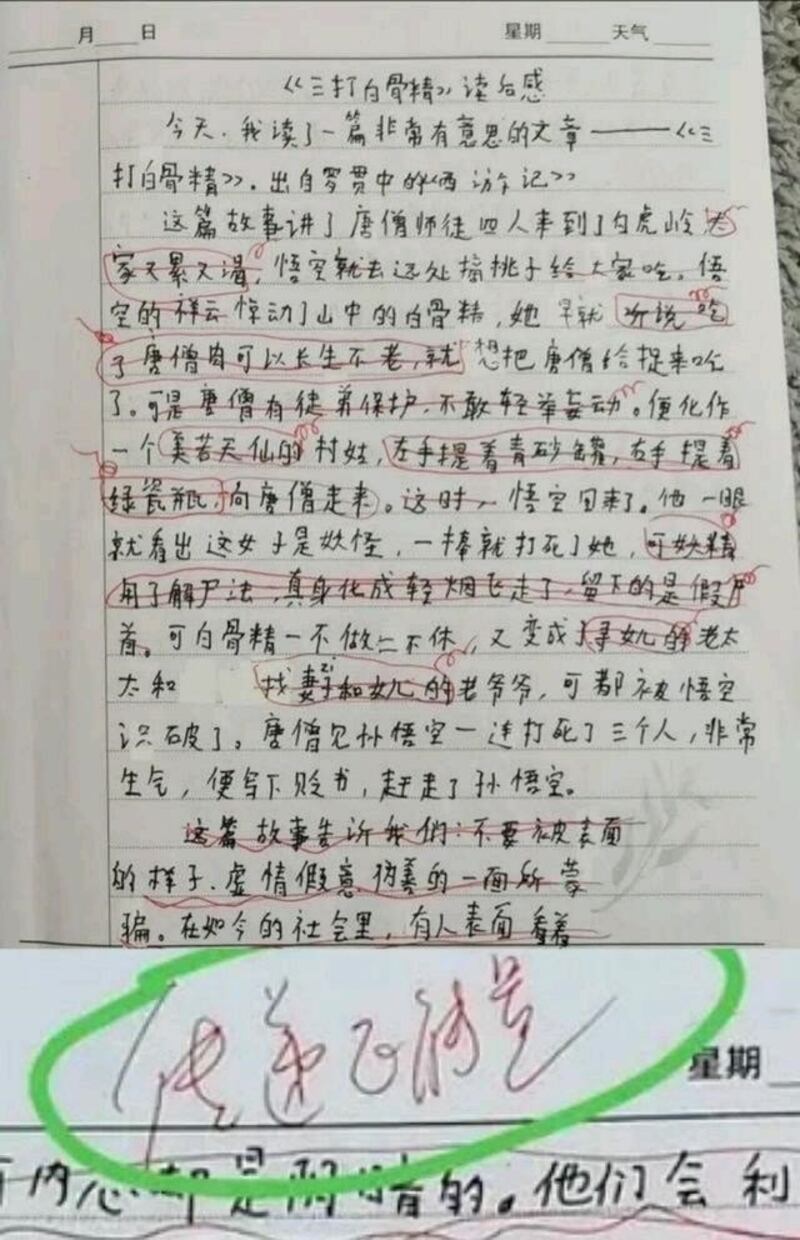 月 日 星期 天气
《三打白骨精》读后感
今天,我读了一篇非常有意思的文章——《三
打白骨精》.出自罗贯中的《西游记》
这篇故事讲了唐僧师徒四人来到了白虎岭,大
家又累又渴,悟空就去远处摘桃子给大家吃。悟
空的祥云惊动了山中的白骨精,她早就听说吃
了唐僧肉可以长生不老,就想把唐僧给捉来吃
了。可是唐僧有徒弟保护,不敢轻举妄动。便化作
一个美若天仙的村姑,左手提着青砂罐,右手提着
绿瓷瓶,向唐僧走来。这时,悟空回来了。他一眼
就看出这女子是妖怪,一棒就打死了她,可妖精
用了解尸法,真身化成轻烟飞走了,留下的是假尸
首。可白骨精一不做二不休,又变成了寻女儿的老太
太和 找妻子和女儿的老爷爷,可都被悟空
识破了。唐僧见孙悟空一连打死了三个人,非常
生气,便写下贬书,赶走了孙悟空。
这篇故事告诉我们:不要被表面
的样子、虚情假意伪善的一面所蒙
骗。在如今的社会里,有人表面看着
传递正能量
星期
内心却是阴暗的。他们会利